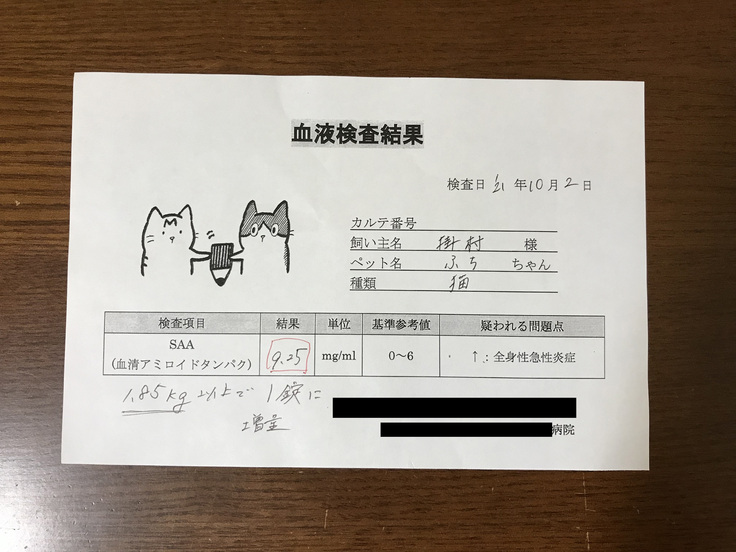 血液検査結果
検査日 '21 年 10 月 2 日
カルテ番号
飼い主名 掛村 様
ペット名 ふち ちゃん
種類 猫
検査項目 結果 単位 基準参考値 疑われる問題点
SAA
(血清アミロイドタンパク) 9.25 mg/ml 0～6 ・ ↑：全身性急性炎症
1.85kg 以上で 1錠に
増量
病院